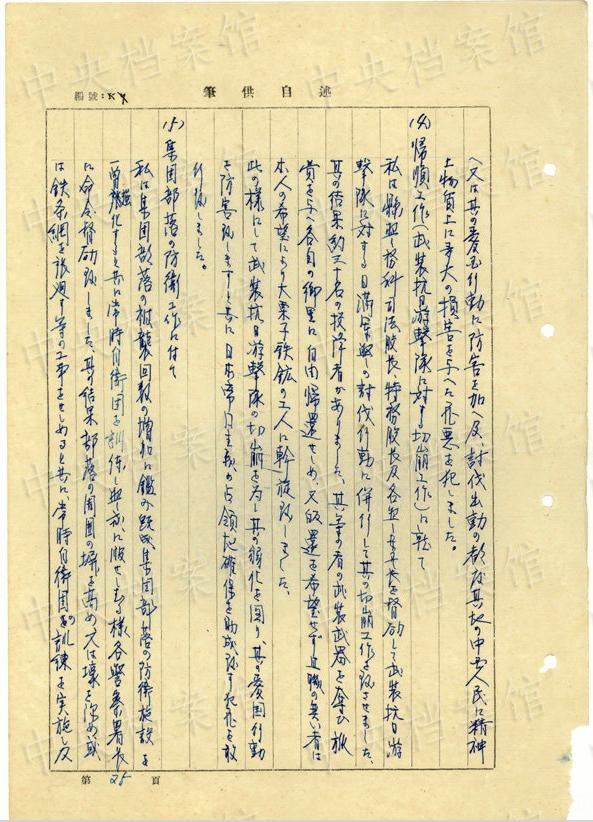 述自供筆
編號:
(又は其の愛国行動に防害を加へ及、討伐出動の都度其地の中国人民に精神
上物質上に多大の損害を与へた罪悪を犯しました。
(4) 帰順工作(武装抗日游撃隊に対する切崩工作)に就て
私は県警務科司法股長、特務股長及各警察署長を督励して武装抗日游
撃隊に対する日満軍警の討伐行動に併行して其の切崩工作を致させました、
其の結果約三十名の投降者がありました、其等の者の武装武器を奪ひ
賞を与へ各自の郷里に自由帰還せしめ、又帰還を希望せず且職の無い者は
本人の希望により大栗子鉄鉱の工人に斡旋致しました、
此の様にして武装抗日游撃隊の切崩を為し其の弱化を図り、其の愛国行動
を防害致しますと共に日本帝国主義の占領地確保を助成致す犯行を敢
行致しました。
(5) 集団部落の防衛工作に付て
私は集団部落の被襲回数の増加に鑑み既成集団部落の防衛施設を
増強化すると共に常時自衛団を訓練し警戒に服せしむる様各警察署長
に命令督励致しました、其の結果部落の周囲の塀を高め又は壕を深め或
は鉄条網を張廻す等の工事をせしめると共に常時自衛団の訓練を実施し及
第 25 頁
中央档案馆